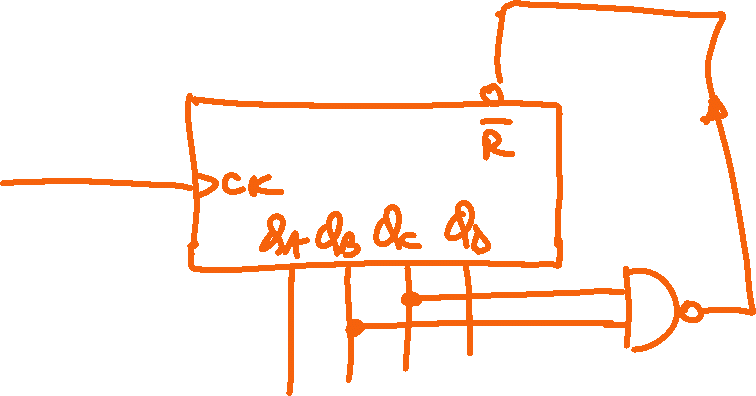 R̅
CK
QA QB QC QD